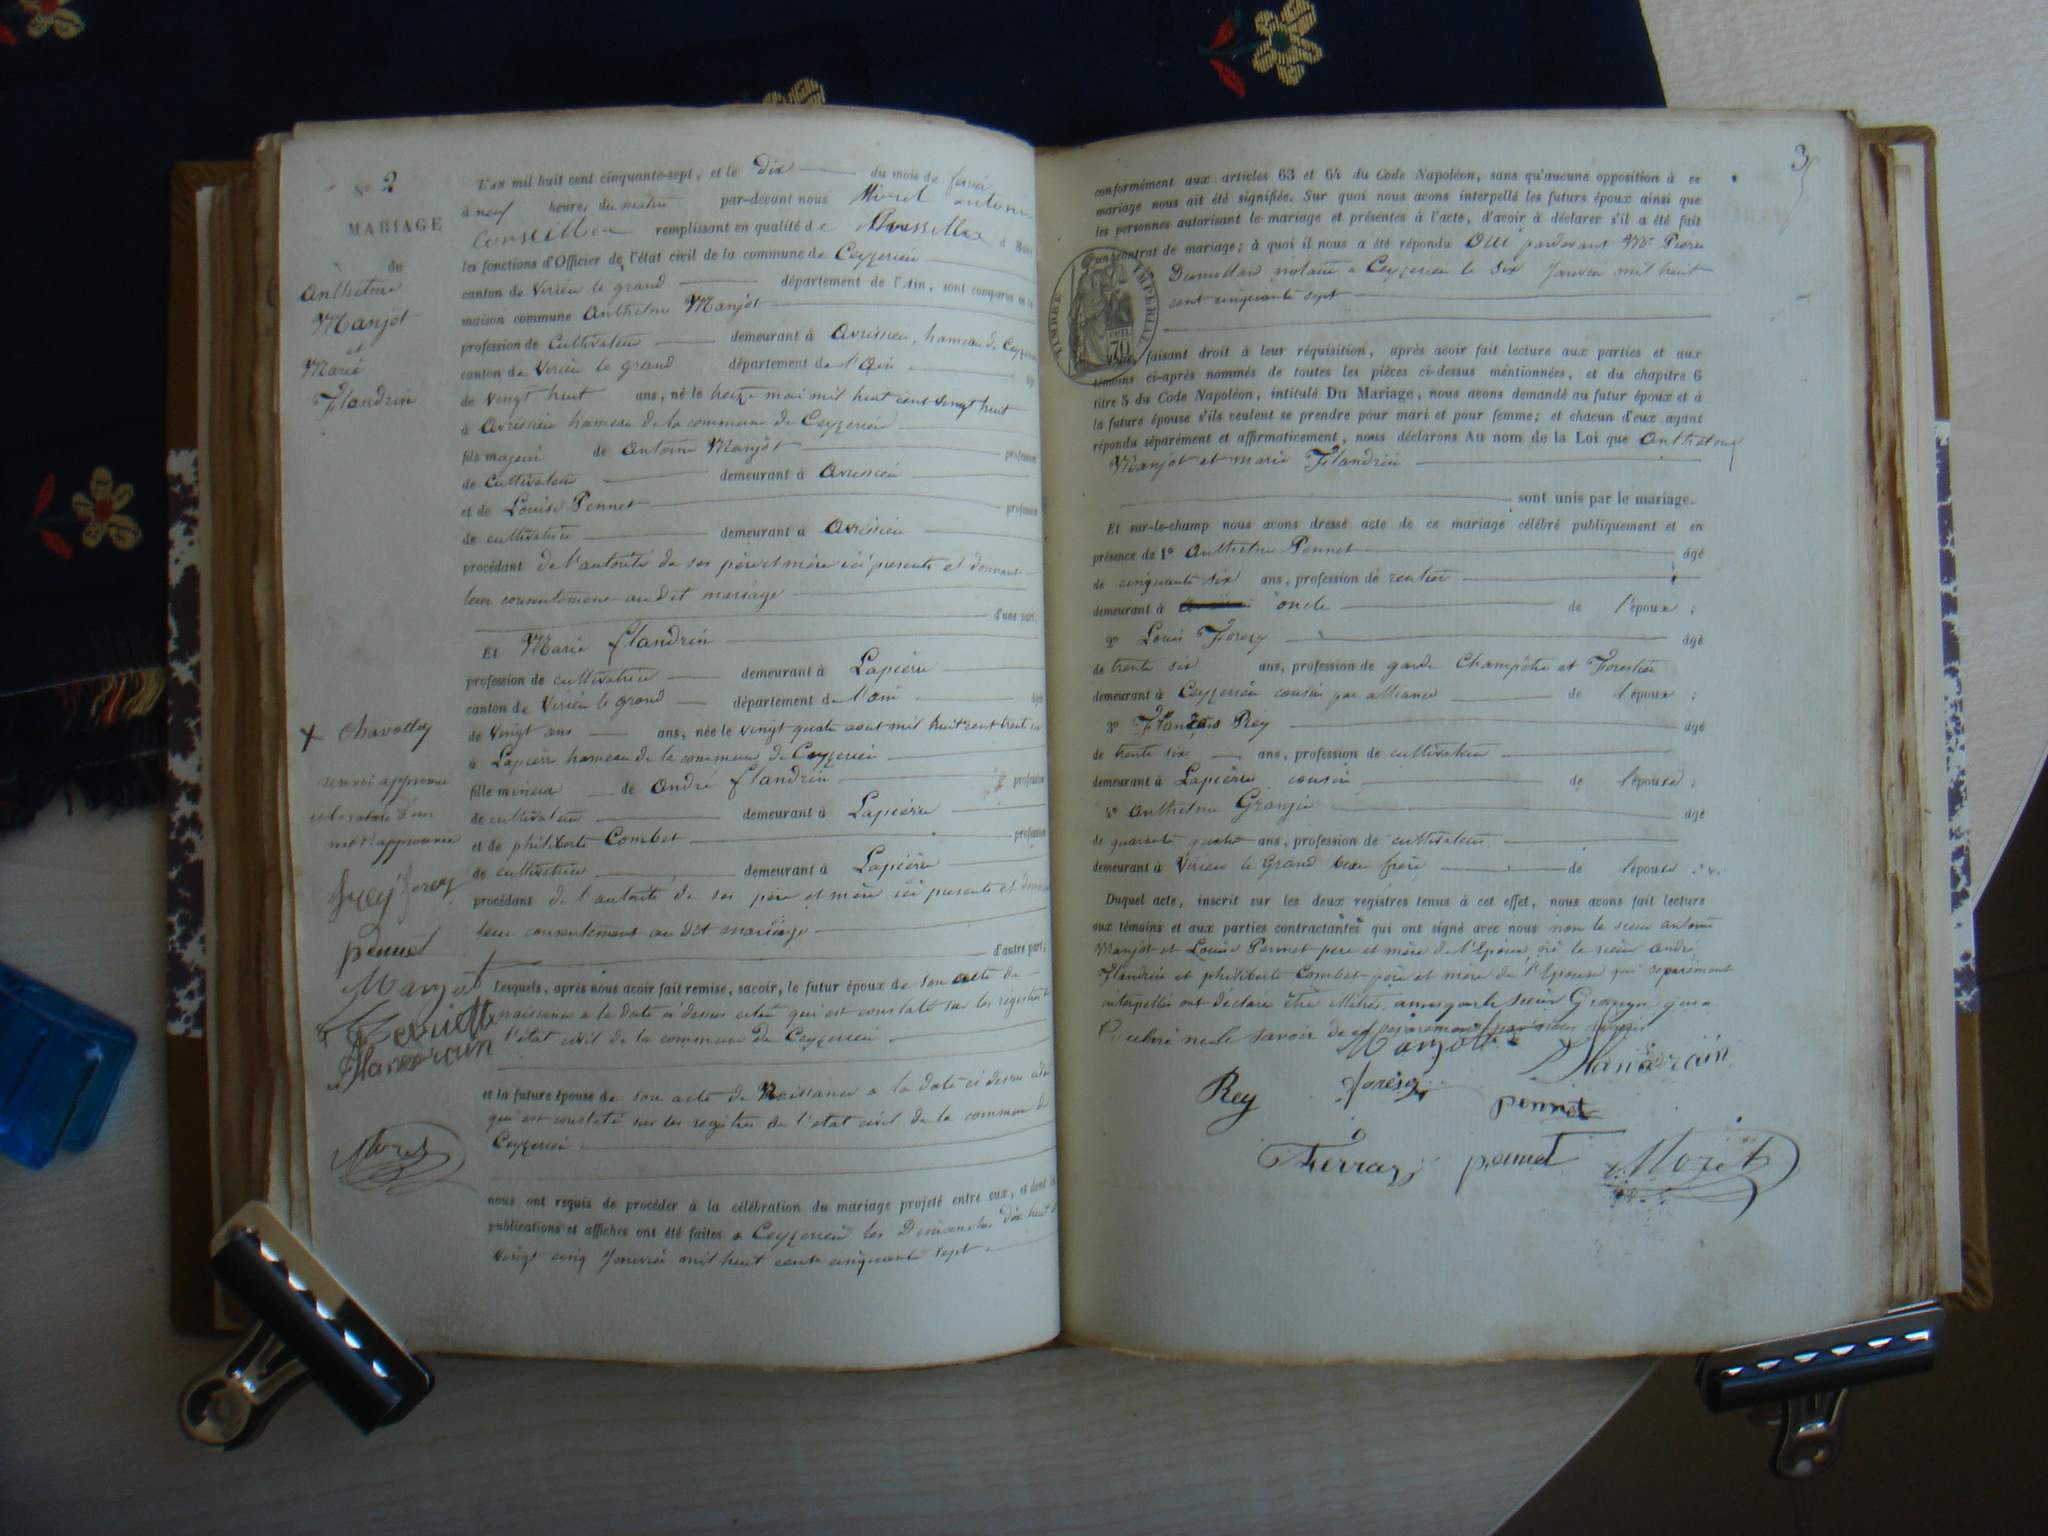 N° 2
MARIAGE
de
Anthelme
Manjot
et
Marie
Flandrin
L'an mil huit cent cinquante-sept, et le dix du mois de
à neuf heures du matin par-devant nous Moret antoine
Conseiller remplissant en qualité de
les fonctions d'Officier de l'état civil de la commune de Ceyzerieu
canton de Virieu le grand département de l'Ain, sont comparus en la
maison commune Anthelme Manjot
profession de Cultivateur demeurant à Avrissieu, hameau de Ceyzerieu
canton de Virieu le grand département de l'Ain
de vingt huit ans, né le mai mil huit cent vingt huit
à Avrissieu hameau de la commune de Ceyzerieu
fils majeur de Antoine Manjot profession
de Cultivateur demeurant à Avrissieu
et de Louise Pennet profession
de cultivatrice demeurant à Avrissieu
procédant de l'autorité de ses père et mère ici presents et donnant
leur consentement au dit mariage
d'une part;
Et Marie flandrin
profession de cultivatrice demeurant à Lapierre
canton de Virieu le grand département de l'ain âgée
de vingt ans ans, née le vingt quatre aout mil huit cent trente six
à Lapierre hameau de la commune de Ceyzerieu
fille mineur de André flandrin profession
de cultivateur demeurant à Lapierre
et de philiberte Combet profession
de cultivatrice demeurant à Lapierre
procédant de l'autorité de ses père et mère ici presents et donnant
leur consentement au dit mariage
d'autre part,
Lesquels, après nous avoir fait remise, savoir, le futur époux de son acte de
naissance a la date ci dessus citée qui est constaté sur les registres de
l'état civil de la commune de Ceyzerieu
et la future épouse de son acte de Naissance a la date ci dessus citée
qui est constaté sur les registres de l'état civil de la commune de
Ceyzerieu
nous ont requis de procéder à la célébration du mariage projeté entre eux, et dont les
publications et affiches ont été faites a Ceyzerieu les Dimanches dix huit &
vingt cinq Janvier mil huit cent cinquante sept
+ Chavolley
renvoi approuvé
et la rature d'un
mot approuvée
Rey forezy
pennet
Manjot
flandrain
Moret
3
conformément aux articles 63 et 64 du Code Napoléon, sans qu'aucune opposition à ce
mariage nous ait été signifiée. Sur quoi nous avons interpellé les futurs époux ainsi que
les personnes autorisant le mariage et présentes à l'acte, d'avoir à déclarer s'il a été fait
un contrat de mariage; à quoi il nous a été répondu Oui pardevant Me Pierre
notaire a Ceyzerieu le six Janvier mil huit
cent cinquante sept
TIMBRE IMPERIAL
70 cen
faisant droit à leur réquisition, après avoir fait lecture aux parties et aux
témoins ci-après nommés de toutes les pièces ci-dessus mentionnées, et du chapitre 6
titre 5 du Code Napoléon, intitulé Du Mariage, nous avons demandé au futur époux et à
la future épouse s'ils veulent se prendre pour mari et pour femme; et chacun d'eux ayant
répondu séparément et affirmativement, nous déclarons Au nom de la Loi que Anthelme
Manjot et marie Flandrin
sont unis par le mariage.
Et sur-le-champ nous avons dressé acte de ce mariage célébré publiquement et en
présence de 1° Anthelme Pennet âgé
de cinquante six ans, profession de rentier
demeurant à oncle de l'époux;
2° Louis Forezy âgé
de trente six ans, profession de garde Champêtre et Forestier
demeurant à Ceyzerieu cousin par alliance de l'époux;
3° François Rey âgé
de trente six ans, profession de cultivateur
demeurant à Lapierre cousin de l'épouse;
4° Anthelme Granjeu âgé
de quarante quatre ans, profession de cultivateur
demeurant à Virieu le Grand beau frère de l'épouse
Duquel acte, inscrit sur les deux registres tenus à cet effet, nous avons fait lecture
aux témoins et aux parties contractantes qui ont signé avec nous non le sieur antoine
Manjot et Louise Pennet pere et mère de l'Epoux, ni le sieur andré
Flandrin et philiberte Combet père et mère de l'Epouse qui séparément
interpellés ont déclaré être illitrés
declaré ne le savoir
Manjot
flandrain
Rey
forezy
pennet
Ferraz
pennet
Moret